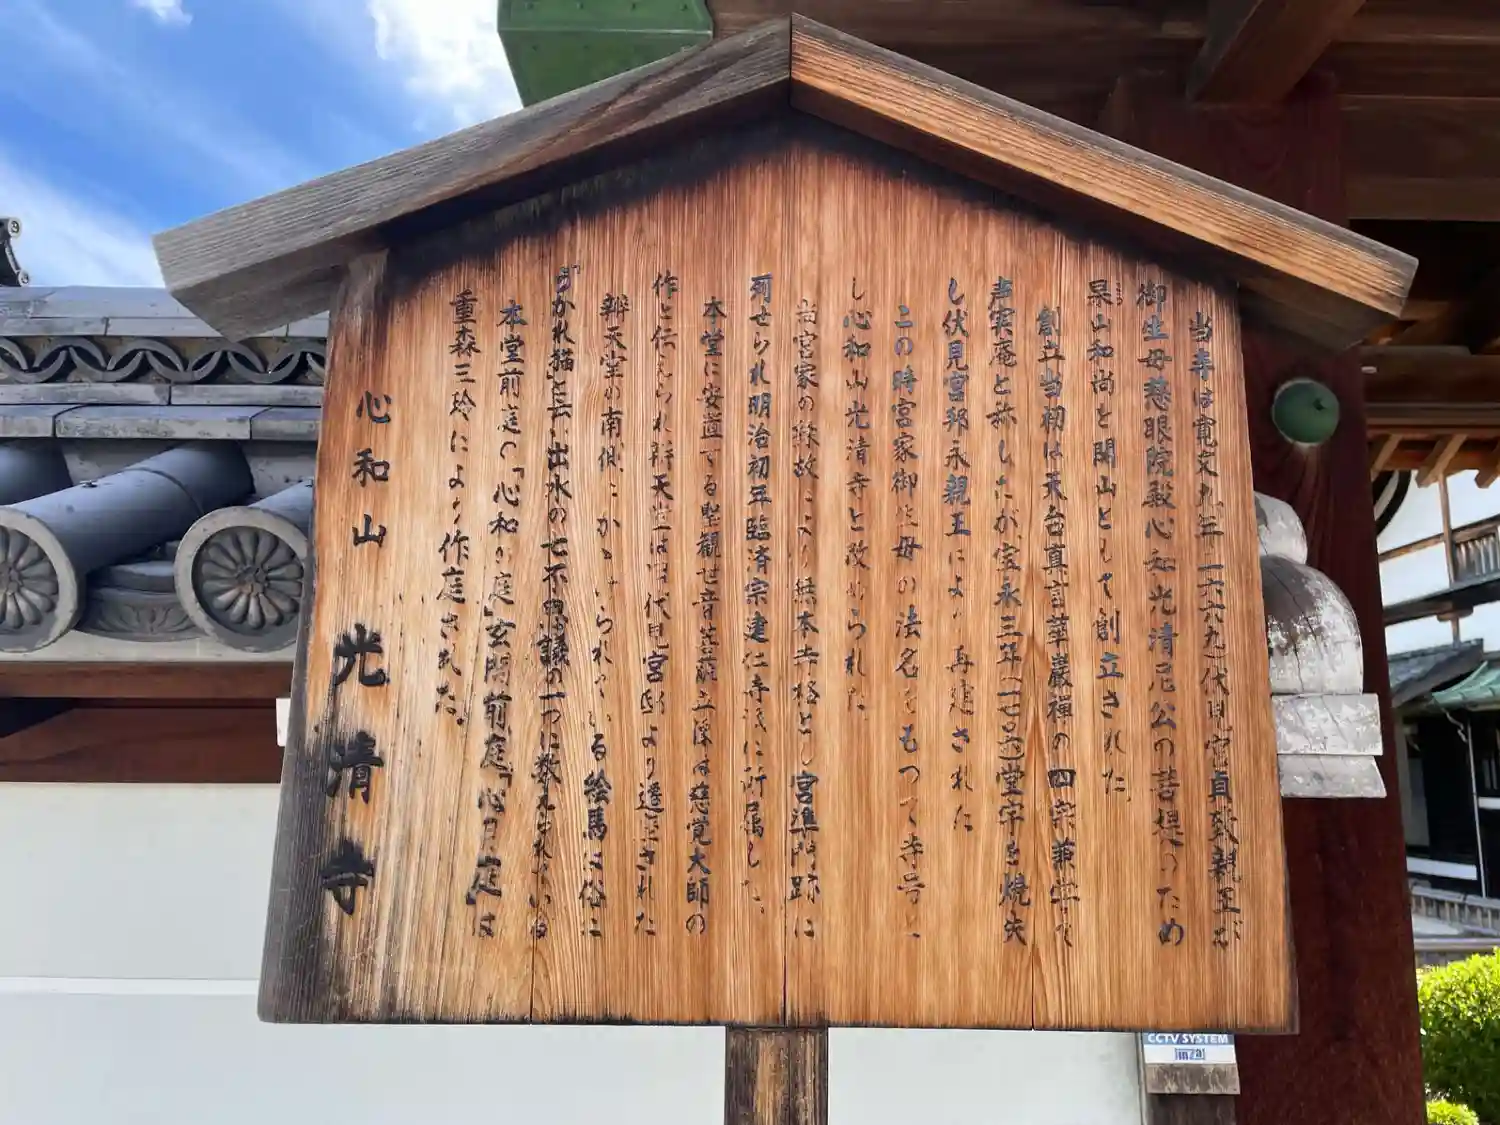 当寺は寛文九年(一六六九)伏見宮貞致親王が
御生母慈眼院殿心和光清尼公の菩提のため
杲山和尚を開山として創立された。
創立当初は天台真言華厳禅の四宗兼学で
声実庵と称したが宝永三年(一七〇六)堂宇を焼失
し伏見宮邦永親王により再建された
この時宮家御生母の法名をもつて寺号と
し心和山光清寺と改められた
当宮家の縁故により無本寺格とし宮準門跡に
列せられ明治初年臨済宗建仁寺派に所属した。
本堂に安置する聖観世音菩薩立像は慈覚大師の
作と伝えられ辨天堂は旧伏見宮邸より遷座された
辨天堂の南側にかかげられている絵馬は俗に
「うかれ猫」と云い出水の七不思議の一つに数えられている
本堂前庭の「心和の庭」玄関前庭「心月庭」は
重森三玲により作庭された。
心和山 光清寺
CCTV SYSTEM